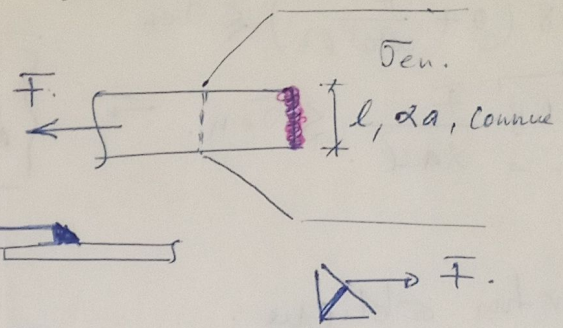 σen.
F.
l, 2a, connue
F.